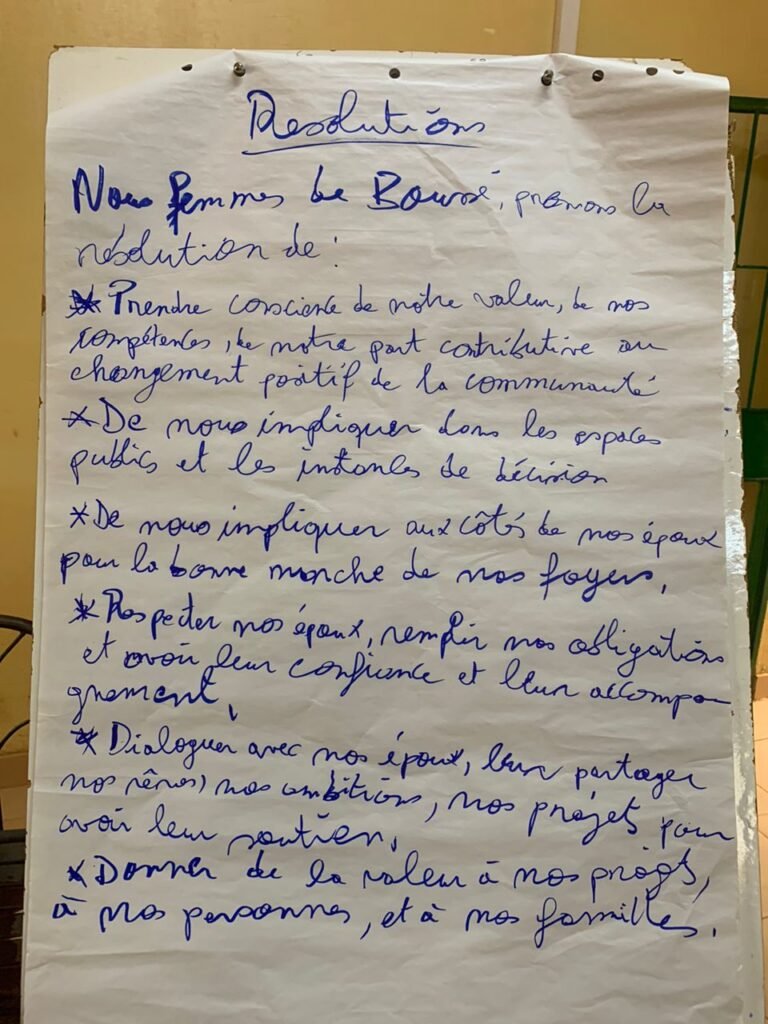 Résolutions
Nous femmes de Boussé, prenons la
résolution de :
* Prendre conscience de notre valeur, de nos
compétences, de notre part contributive au
changement positif de la communauté
* De nous impliquer dans les espaces
publics et les instances de décision
* De nous impliquer aux côtés de nos époux
pour la bonne marche de nos foyers.
* Respecter nos époux, remplir nos obligations
et avoir leur confiance et leur accompa-
gnement,
* Dialoguer avec nos époux, leur partager
nos rêves, nos ambitions, nos projets pour
avoir leur soutien.
* Donner de la valeur à nos projets,
à nos personnes, et à nos familles.